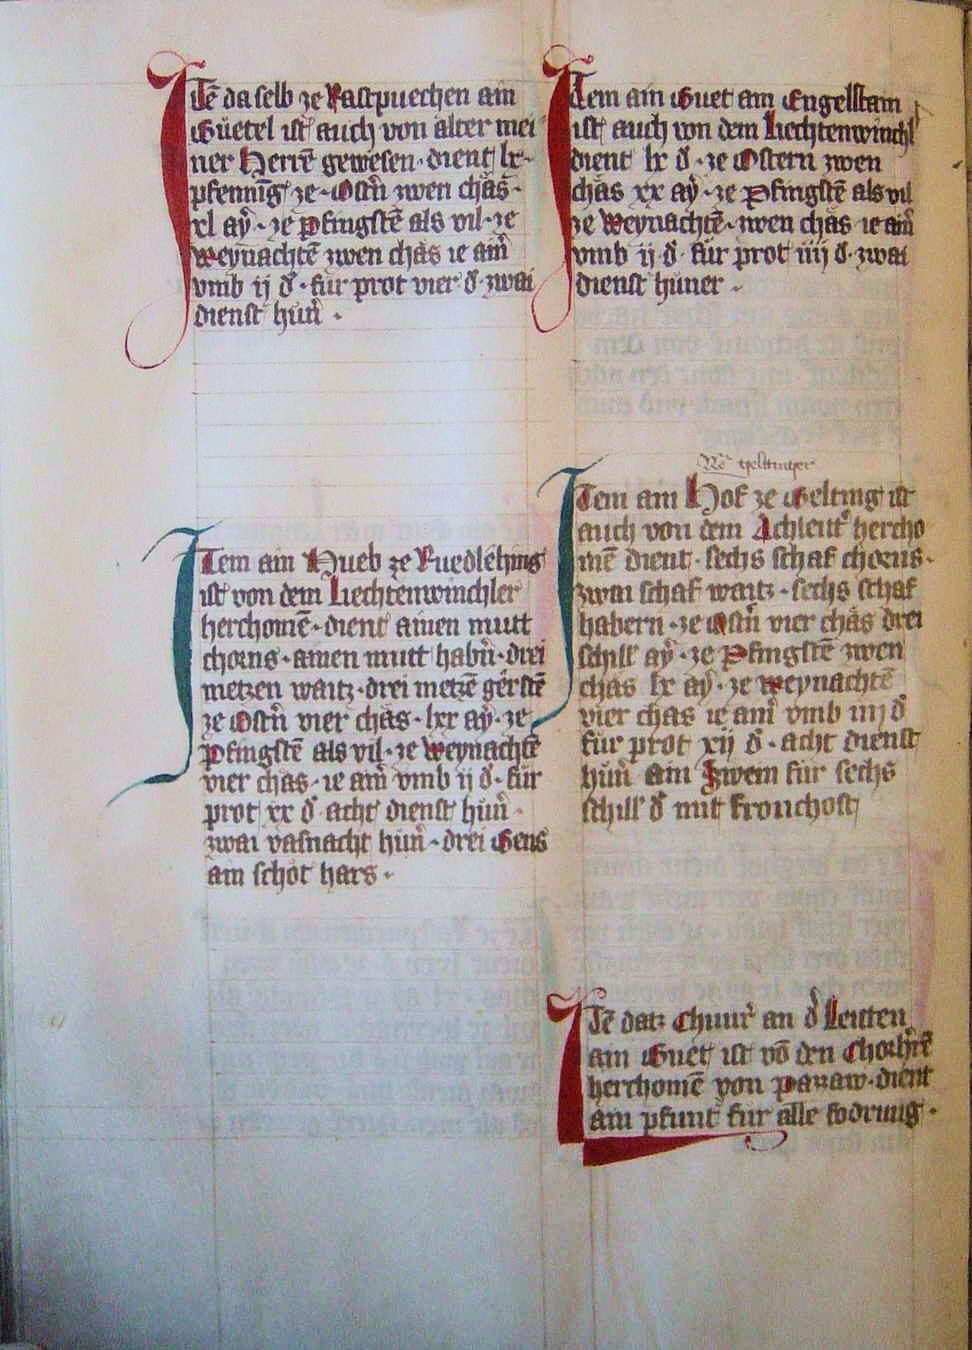 Itē daselb ze Rastpuechen ain
Guetel ist auch von alter mei
ner Herrē gewesen · dient lx ·
pfenning ze · Ostn̄ zwen chäs ·
xl ay̆ · ze Pfingstē als vil · ze
weynachtē zwen chäs ie ain̄
vmb ij ₰ · für prot vier ₰ · zwai
dienst hün̄ ·
Item ain Hueb ze Ruedlehing
ist von dem Liechtenwinchler
herchomē · dient ainen mutt
chorns · ainen mutt habn̄ · drei
metzen waitz · drei metzē gerstē
ze Ostn̄ vier chäs · lxx ay̆ · ze
Pfingstē als vil · ze weynachtē
vier chäs · ie ain̄ vmb ij ₰ · für
prot xx ₰ acht dienst hün̄ ·
zwai vasnacht hün̄ · drei Gens
ain schot hars ·
Item ain Guet am Engelstain
ist auch von dem Liechtenwinchl
dient lx ₰ · ze Ostern zwen
chäs xx ay̆ · ze Pfingstē als vil
ze weynachtē · zwen chäs ie ain̄
vmb ij ₰ · für prot iiij ₰ · zwai
dienst hüner ·
Item ain Hof ze Gelting ist
auch von dem Achleit' hercho
mē dient · sechs schaf chorns ·
zwai schaf waitz · sechs schaf
habern · ze Ostn̄ vier chäs drei
schill' ay̆ · ze Pfingstē zwen
chäs lx ay̆ · ze weynachtē
vier chäs ie ain̄ vmb iiij ₰
für prot xij ₰ · acht dienst
hün̄ ain Swein für sechs
schill' ₰ mit fronchost
Itē datz Chuur' an d' Leiten
ain Guet ist vō den Chorh'rē
herchomē von Pazzaw · dient
ain pfunt für alle fodrung ·